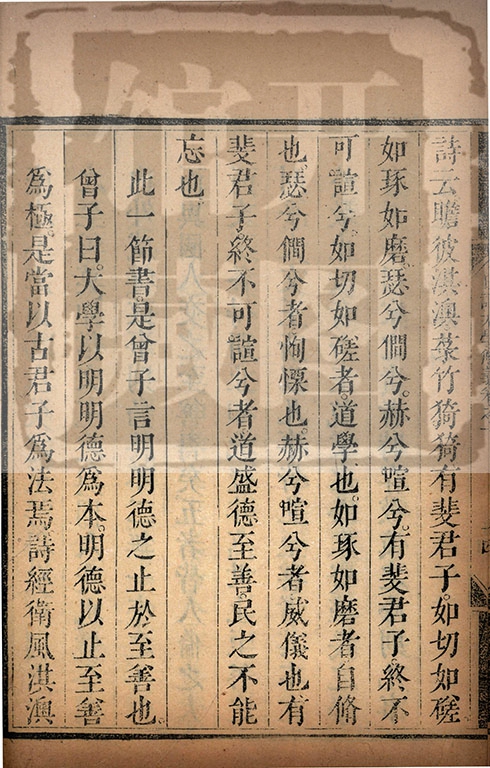 詩云瞻彼淇澳菉竹猗猗有斐君子。如切如磋
如琢如磨。瑟兮僩兮。赫兮喧兮。有斐君子終不
可諠兮。如切如磋者。道學也。如琢如磨者自脩
也。瑟兮僩兮者恂慄也。赫兮喧兮者。威儀也有
斐君子。終不可諠兮者道盛德至善。民之不能
忘也
此一節書。是曾子言明明德之止於至善也。
曾子曰。大學以明明德爲本。明德以止至善
爲極。是當以古君子爲法焉詩經衛風淇澳